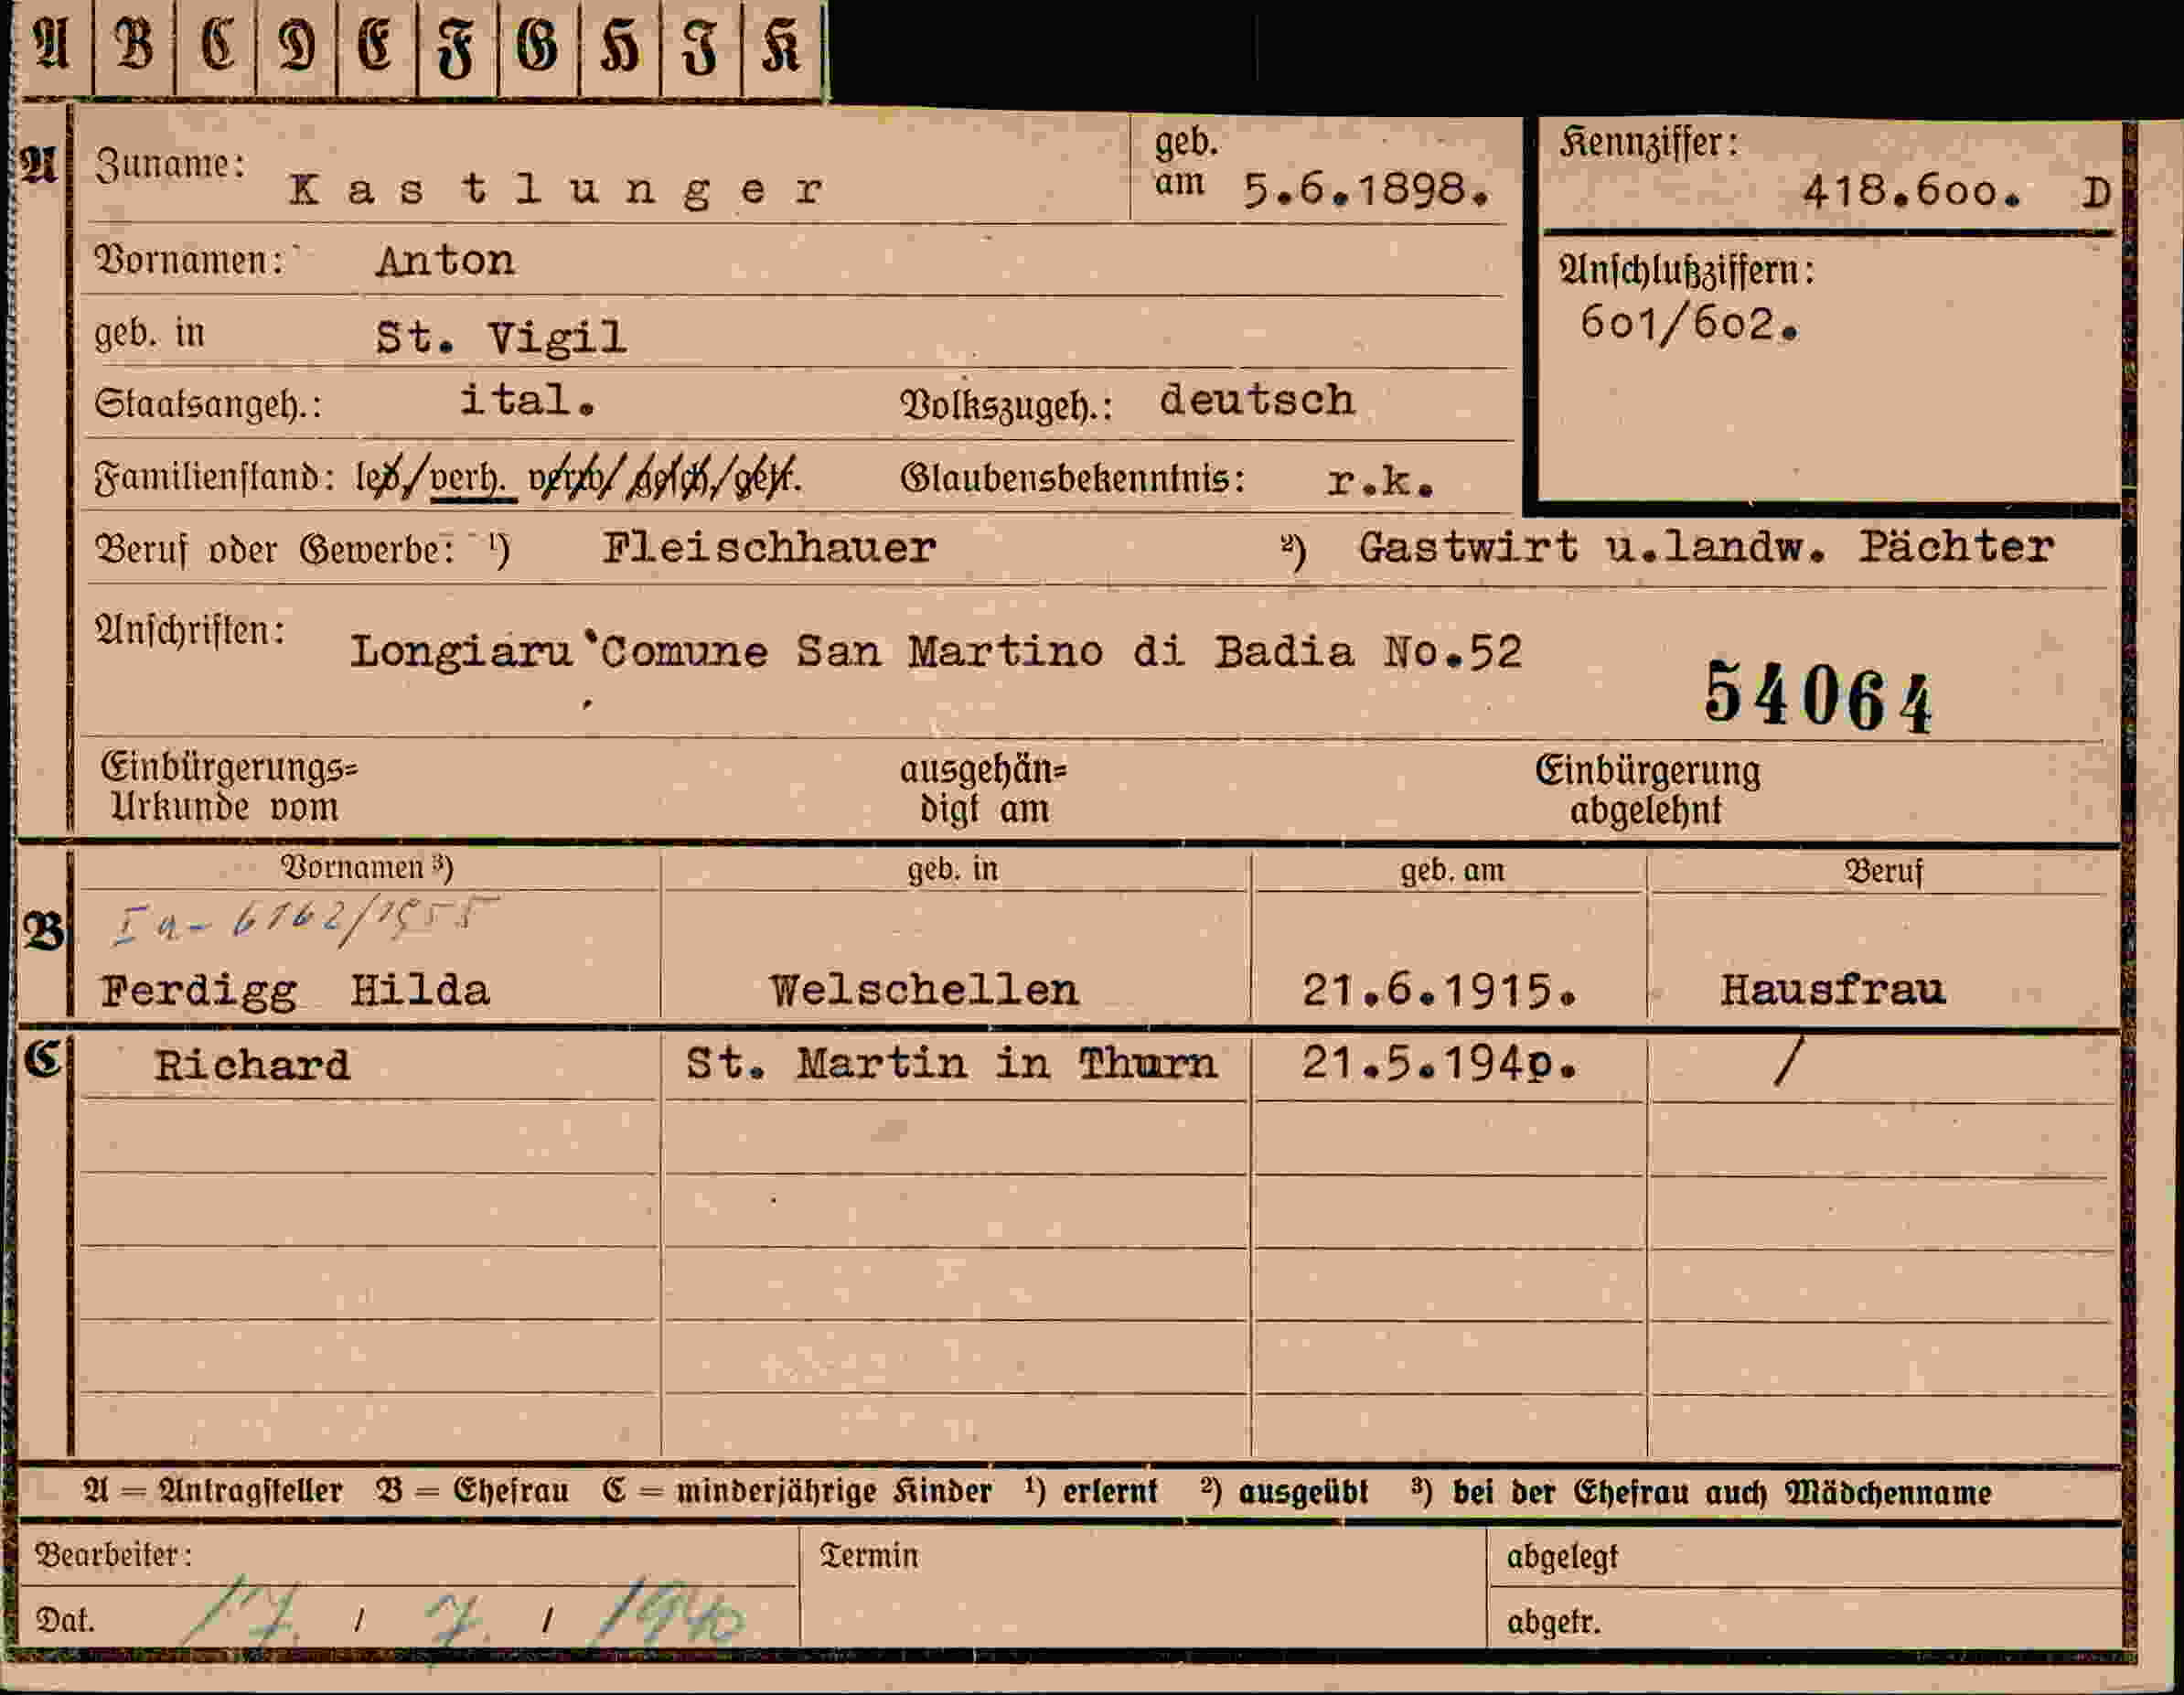 A B C D E F G H J K
A Zuname: Kastlunger geb. am 5.6.1898. Kennziffer: 418.600. D
Vornamen: Anton Anschlußziffern:
geb. in St. Vigil 601/602.
Staatsangeh.: ital. Volkszugeh.: deutsch
Familienstand: led./verh. verw/ gesch/get. Glaubensbekenntnis: r.k.
Beruf oder Gewerbe: ¹) Fleischhauer ²) Gastwirt u.landw. Pächter
Anschriften: Longiaru Comune San Martino di Badia No.52
54064
Einbürgerungs= ausgehän= Einbürgerung
Urkunde vom digt am abgelehnt
Vornamen ³) geb. in geb. am Beruf
B Ia- 6162/1955
Ferdigg Hilda Welschellen 21.6.1915. Hausfrau
C Richard St. Martin in Thurn 21.5.1940. /
A = Antragsteller B = Ehefrau C = minderjährige Kinder ¹) erlernt ²) ausgeübt ³) bei der Ehefrau auch Mädchenname
Bearbeiter: Termin abgelegt
Dat. 17. / 7. / 1940 abgefr.